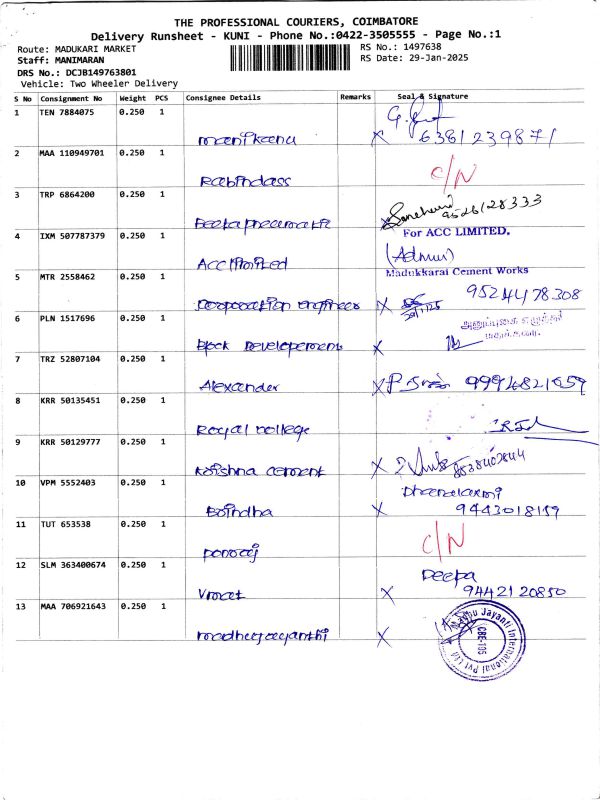 THE PROFESSIONAL COURIERS, COIMBATORE
Delivery Runsheet - KUNI - Phone No.:0422-3505555 - Page No.:1
Route: MADUKARI MARKET
RS No.: 1497638
Staff: MANIMARAN
RS Date: 29-Jan-2025
DRS No.: DCJB149763801
Vehicle: Two Wheeler Delivery
S No Consignment No Weight PCS Consignee Details Remarks Seal & Signature
1 TEN 7884075 0.250 1
manikeanu X 6381239871
2 MAA 110949701 0.250 1
Rabindass C/N
3 TRP 6864200 0.250 1
9526128333
4 IXM 507787379 0.250 1
For ACC LIMITED.
ACC limited (Admin)
Madukkarai Cement Works
5 MTR 2558462 0.250 1
corporation engineer X 9524478308
6 PLN 1517696 0.250 1
Block Developement X
7 TRZ 52807104 0.250 1
Alexander X 9994821659
8 KRR 50135451 0.250 1
Royal college
9 KRR 50129777 0.250 1
Krishna cement X 8838402844
10 VPM 5552403 0.250 1
Dhanalaxmi
Brindha X 9443018159
11 TUT 653538 0.250 1
ponraj C/N
12 SLM 363400674 0.250 1
Deepa
X 9442120850
13 MAA 706921643 0.250 1
madhujayanthi X
Madhu Jayanti International Pvt Ltd
CBE-105